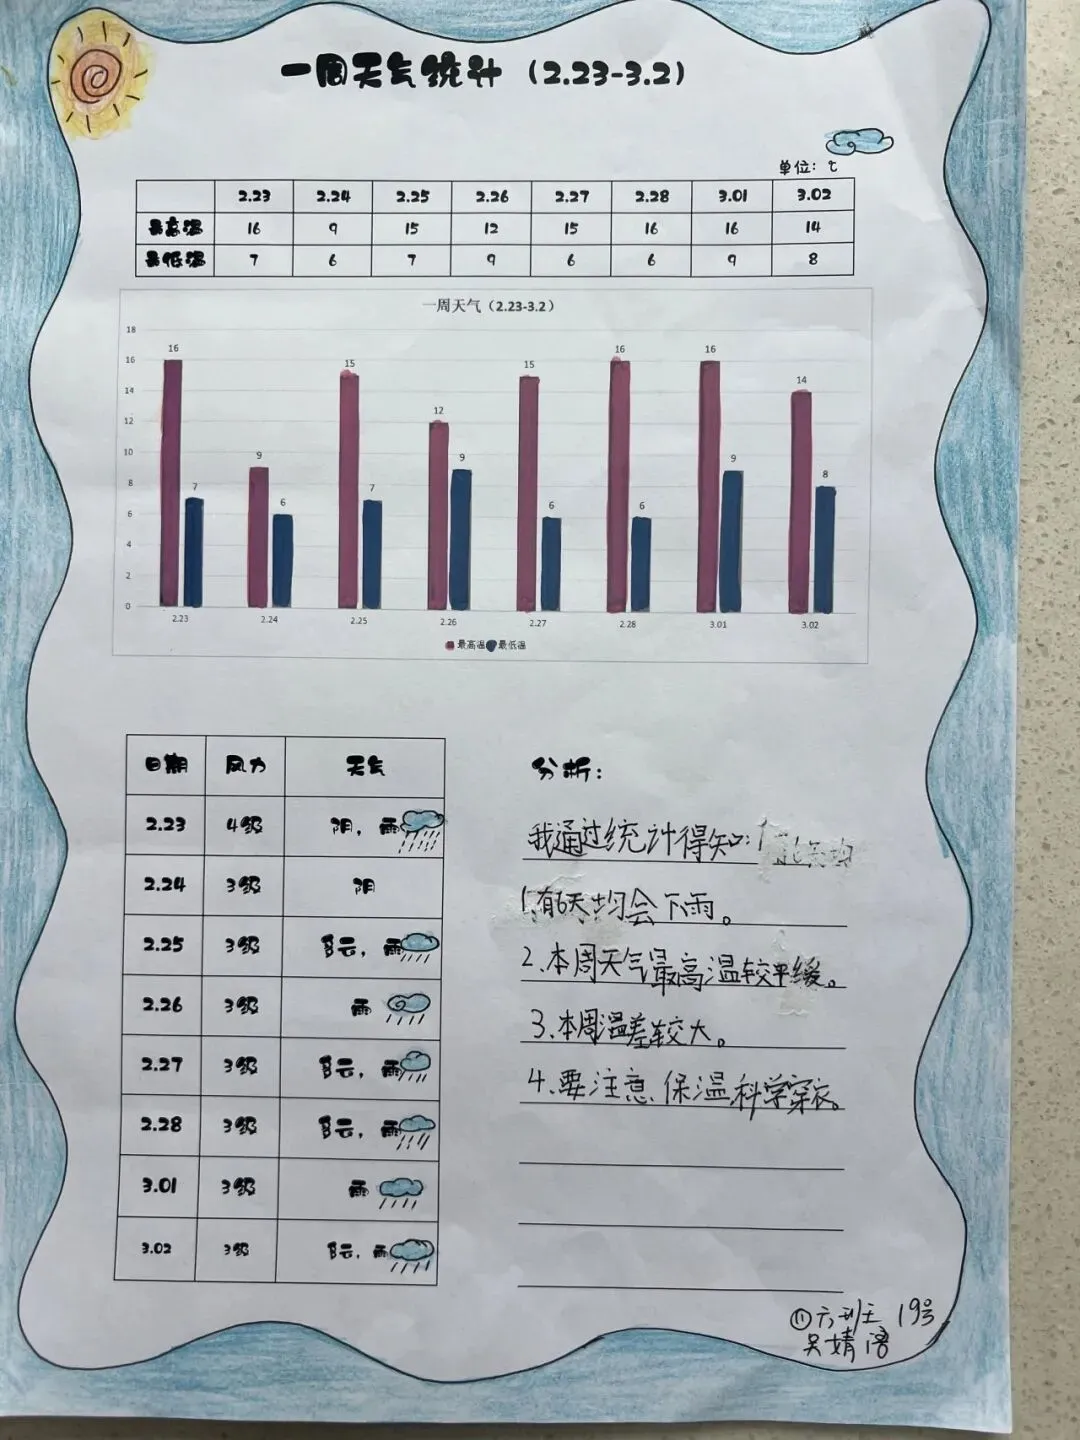 一周天气统计（2.23-3.2）
单位：℃
2.23 2.24 2.25 2.26 2.27 2.28 3.01 3.02
最高温 16 9 15 12 15 16 16 14
最低温 7 6 7 9 6 6 9 8
一周天气（2.23-3.2）
18
16
14
12
10
8
6
4
2
0
16 7 9 6 15 7 12 9 15 6 16 6 16 9 14 8
2.23 2.24 2.25 2.26 2.27 2.28 3.01 3.02
最高温 最低温
日期 风力 天气
2.23 4级 阴，雨
2.24 3级 阴
2.25 3级 多云，雨
2.26 3级 雨
2.27 3级 多云，雨
2.28 3级 多云，雨
3.01 3级 雨
3.02 3级 多云，雨
分析：
我通过统计得知：
1.有6天均会下雨。
2.本周天气最高温较平缓。
3.本周温差较大。
4.要注意保温科学穿衣。
19号
吴婧